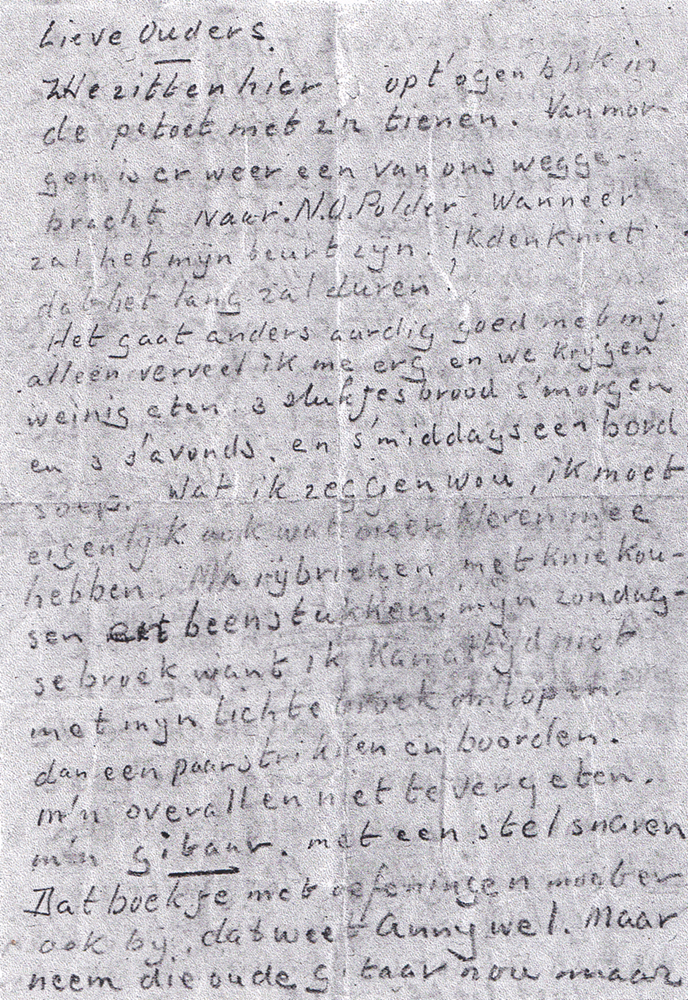 Lieve Ouders.
We zitten hier op t'ogenblik in
de petoet met z'n tienen. Van mor-
gen is er weer een van ons wegge-
bracht naar. N.O. Polder. Wanneer
zal het mijn beurt zijn. Ik denk niet
dat het lang zal duren.
Het gaat anders aardig goed met mij.
alleen verveel ik me erg en we krijgen
weinig eten. 3 stukjes brood s'morgen
en 3 s'avonds. en s'middags een bord
soep. Wat ik zeggen wou, ik moet
eigenlijk ook wat meer kleren mee
hebben. Mn rijbroeken met kniekou-
sen en beenstukken, mijn zondag-
se broek want ik kan altijd niet
met mijn lichte broek omlopen.
dan een paar strikken en boorden.
m'n overallen niet te vergeten.
m'n gitaar. met een stel snaren
Dat boekje met oefeningen moet er
ook bij, dat weet Anny wel. Maar
neem die oude gitaar nou maar